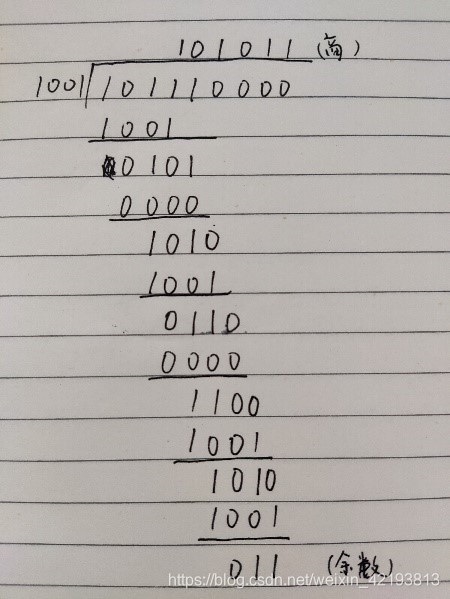 101011 (商)
1001 101110000
1001
0101
0000
1010
1001
0110
0000
1100
1001
1010
1001
011 (余数)
https://blog.csdn.net/weixin_42193813